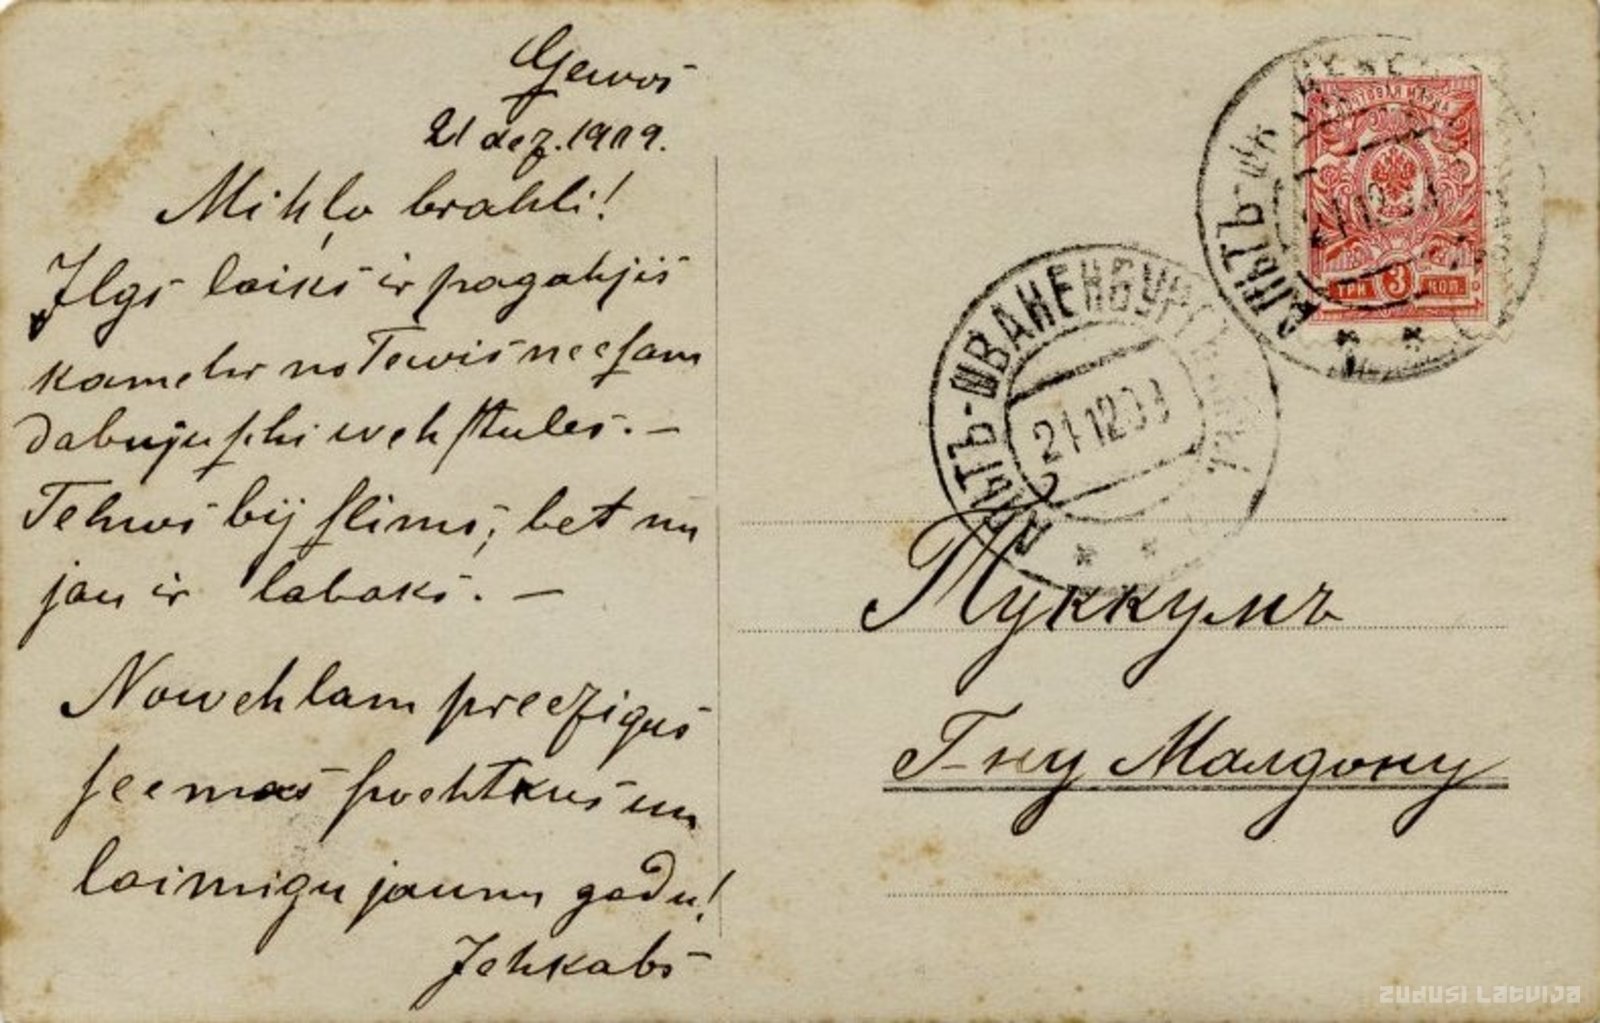 21 dez. 1909.
Mihļo brahli!
Ilgs laiks ir pagahjis
kamehr no Tewis neesam
dabujuschi wehstules. —
Tehws bij slims, bet nu
jau ir labaks. —
Nowehlam preezigus
seemas swehtkus un
laimigu jaunu gadu!
Jehkabs
ПОЧТОВАЯ МАРКА
21 12 09
ТРИ 3 КОП.
АЛЬТЪ-ШВАНЕНБУРГ
21 12 09
Туккумъ
Г-ну Малдону
ZUDUSI LATVIJA